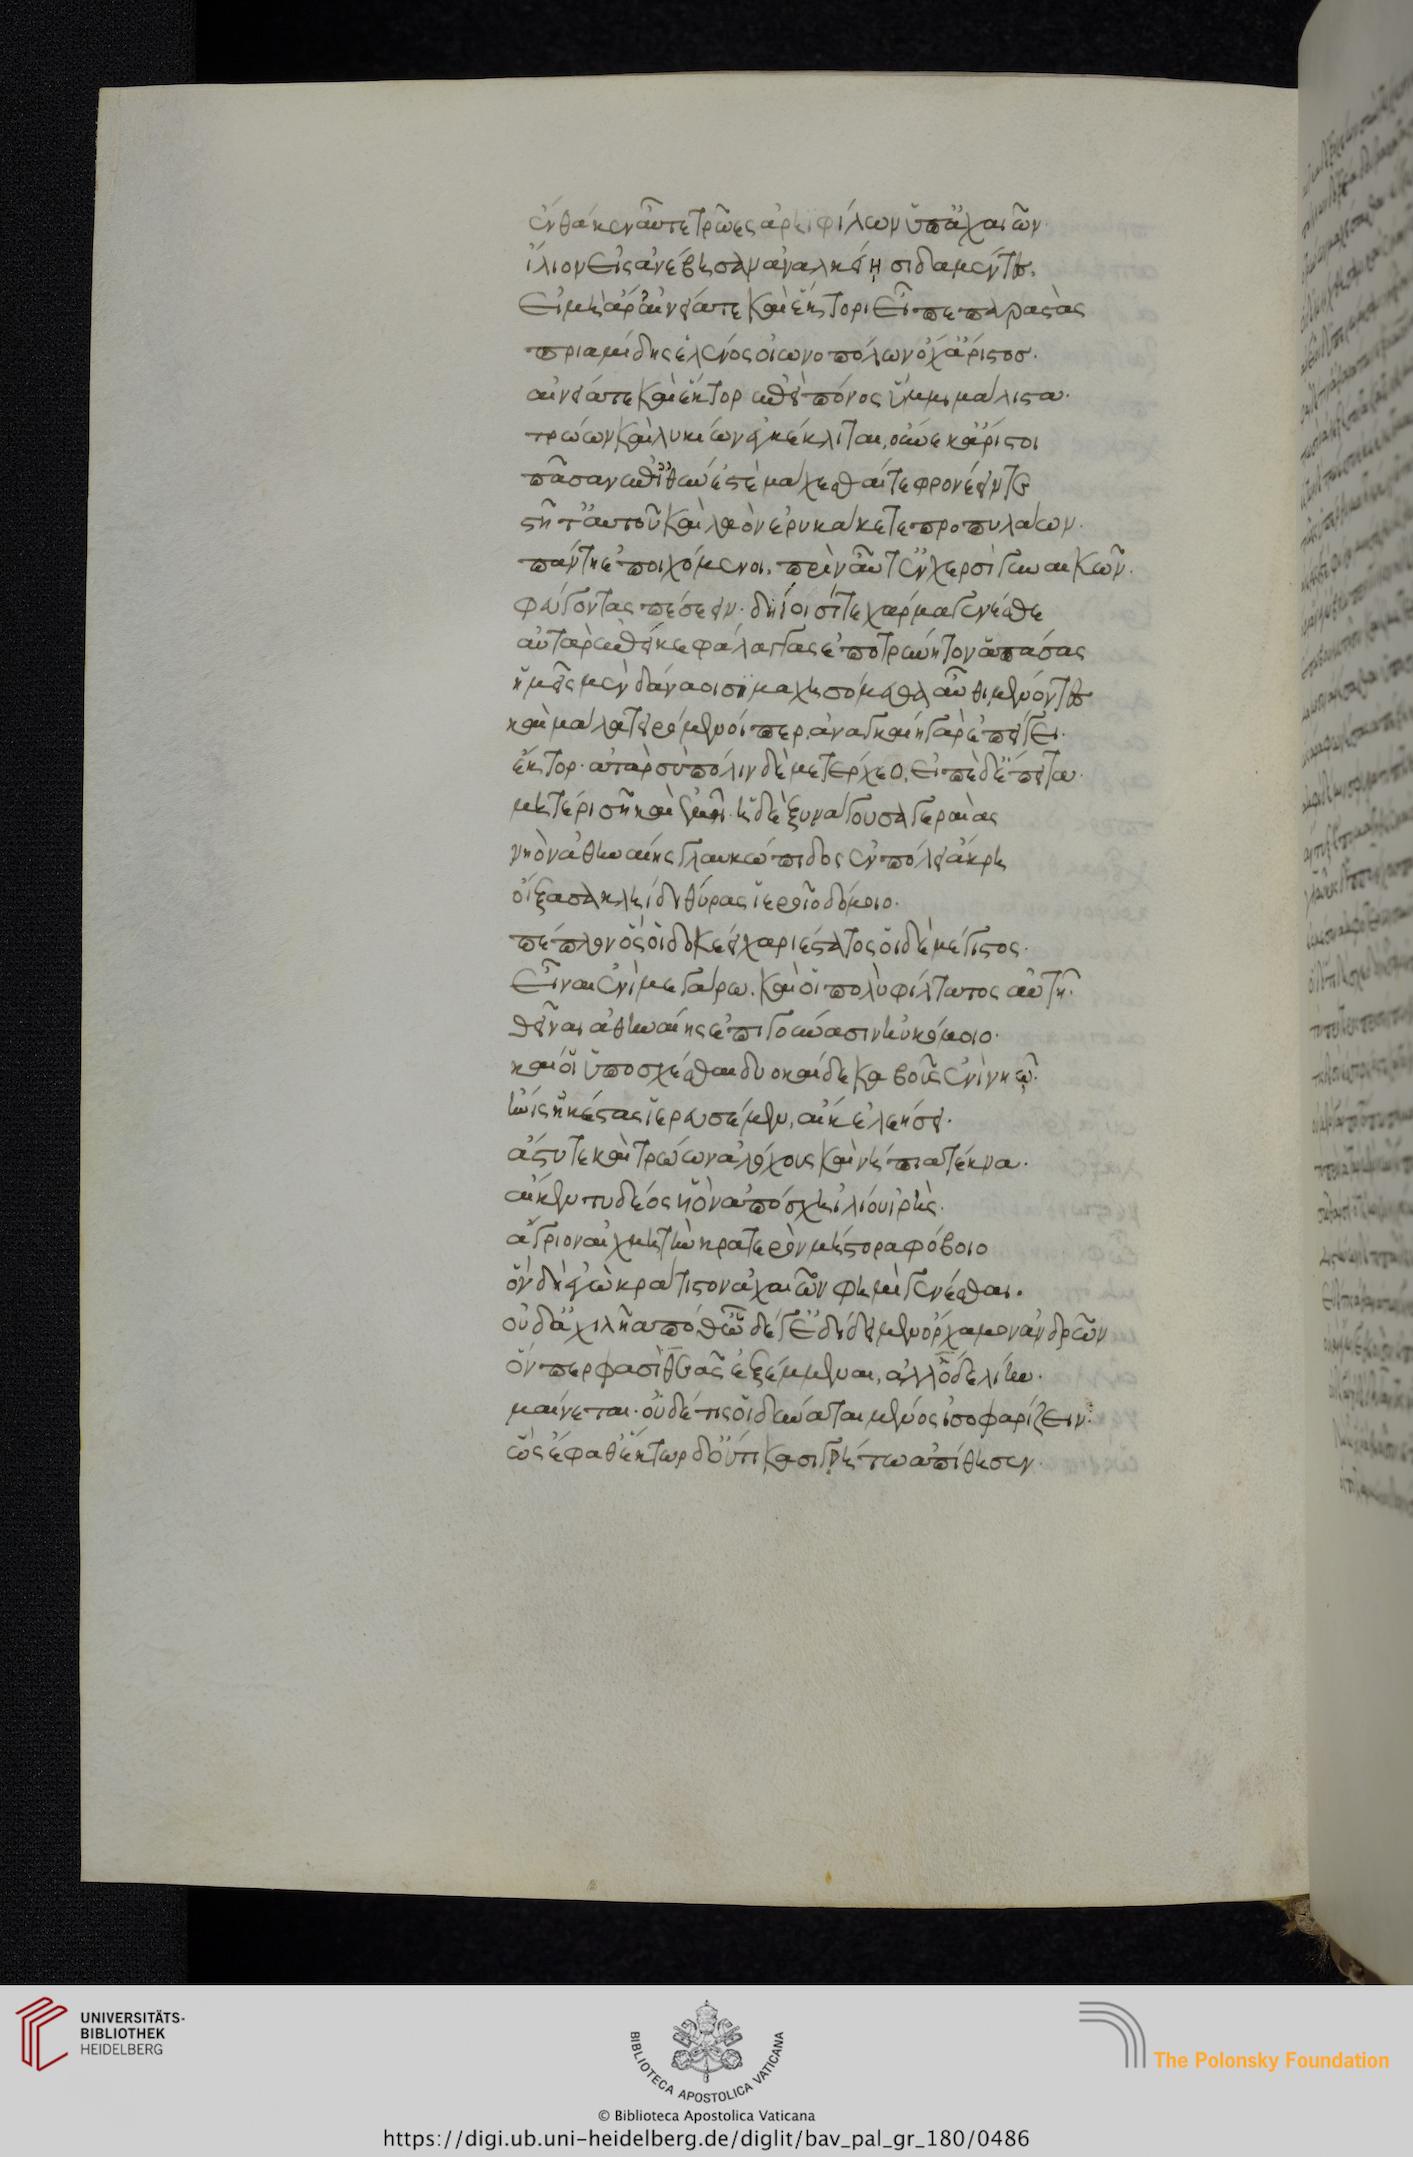 ἔνθά κεν αὖτε τρῶες ἀρηϊφίλων ὑπ' ἀχαιῶν·
ἴλιον εἰς ἀνέβησαν ἀναλκείησι δαμέντες.
εἰ μὴ ἄρ' αἰνείᾳ τε καὶ ἕκτορι εἶπε παραστὰς
πριαμίδης ἕλενος οἰωνοπόλων ὄχ' ἄριστος·
αἰνεία τε καὶ ἕκτορ ἐπεὶ πόνος ὔμμι μάλιστα·
τρώων καὶ λυκίων ἐγκέκλιται, οὕνεκ' ἄριστοι
πᾶσαν ἐπ' ἰθύν ἐστὲ μάχεσθαί τε φρονέειν τε
στῆτ' αὐτοῦ καὶ λαὸν ἐρυκάκετε προπυλάων·
πάντη ἐποιχόμενοι, πρὶν αὖτ' ἐν χερσὶ γυναικῶν·
φεύγοντας πεσέειν· δηΐοισί τε χάρμα γενέσθαι
αὐτὰρ ἐπεί κε φάλαγγας ἐποτρύνητον ἁπάσας
ἡμεῖς μὲν δάναοισι μαχησόμεθα αὖθι μένοντες
καὶ μάλα τειρόμενοί περ, ἀναγκαίη γὰρ ἐπείγει·
ἕκτορ· ἀτὰρ σὺ πόλιν δὲ μετέρχεο, εἰπὲ δ' ἔπειτα·
μητέρι σῆ καὶ ἐμῆ· ἡ δὲ ξυνάγουσα γεραιὰς
νηὸν ἀθηναίης γλαυκώπιδος ἐν πόλει ἄκρη
οἴξασα κληῗδι θύρας ἱεροῖο δόμοιο·
πέπλον ὅς οἱ δοκέει χαριέστατος ἠδὲ μέγιστος·
εἶναι ἐνὶ μεγάρω· καὶ οἱ πολὺ φίλτατος αὐτῆ·
θεῖναι ἀθηναίης ἐπὶ γούνασιν ἠυκόμοιο·
καί οἱ ὑποσχέσθαι δυοκαίδεκα βοῦς ἐνὶ νηῷ·
ἤνις ἠκέστας ἱερευσέμεν, αἴ κ' ἐλεήσει·
ἄστυ τε καὶ τρώων ἀλόχους καὶ νήπια τέκνα·
αἴ κεν τυδέος υἱὸν ἀπόσχη ἰλίου ἱρῆς·
ἄγριον αἰχμητὴν κρατερὸν μήστορα φόβοιο
ὃν δὴ ἐγὼ κράτιστον ἀχαιῶν φημὶ γενέσθαι·
οὐδ' ἀχιλῆά ποθ' ὧδέ γ' ἐδείδειμεν ὄρχαμον ἀνδρῶν
ὅν περ φασὶ θεᾶς ἐξέμμεναι, ἀλλ' ὅδε λίην·
μαίνεται· οὐδέ τίς οἱ δύναται μένος ἰσοφαρίζειν·
ὣς ἔφαθ' ἕκτωρ δ' οὔτι κασιγνήτω ἀπίθησεν·
UNIVERSITÄTS-
BIBLIOTHEK
HEIDELBERG
BIBLIOTECA APOSTOLICA VATICANA
The Polonsky Foundation
© Biblioteca Apostolica Vaticana
https://digi.ub.uni-heidelberg.de/diglit/bav_pal_gr_180/0486